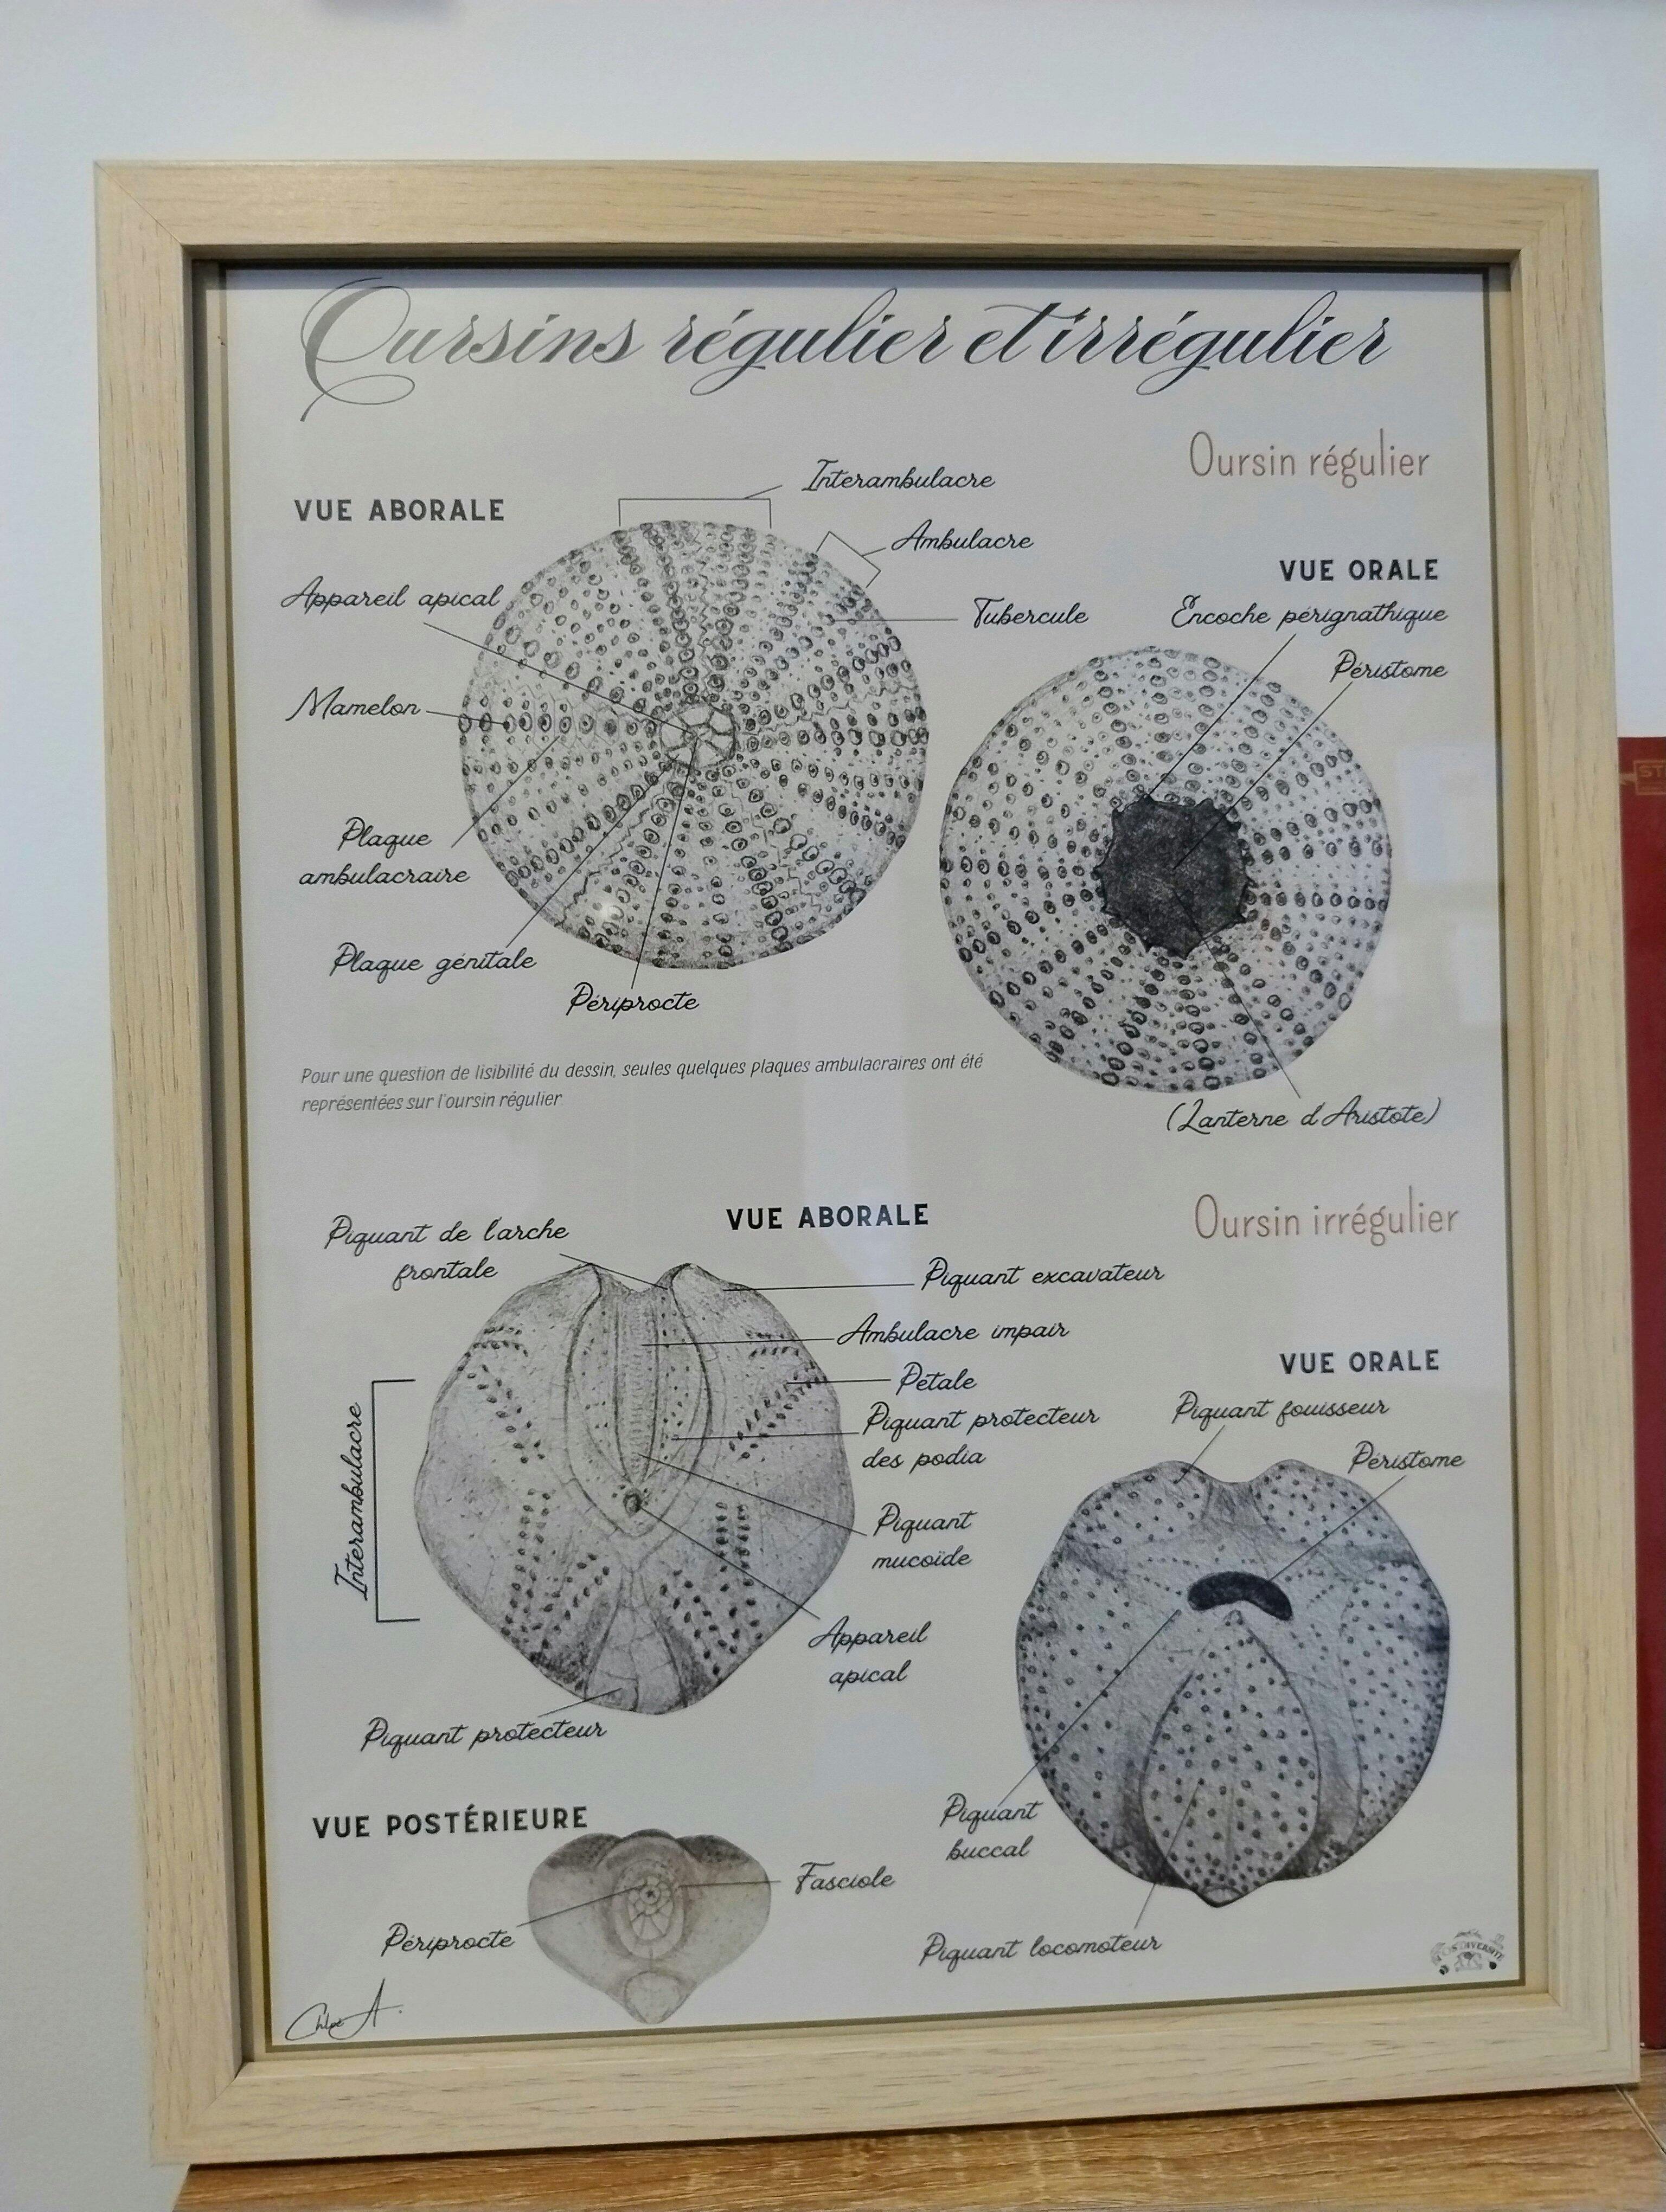 Oursins régulier et irrégulier
Oursin régulier
VUE ABORALE
Interambulacre
Ambulacre
Appareil apical
Tubercule
Mamelon
Plaque
ambulacraire
Plaque génitale
Périprocte
VUE ORALE
Encoche pérignathique
Péristome
(Lanterne d'Aristote)
Pour une question de lisibilité du dessin, seules quelques plaques ambulacraires ont été
représentées sur l'oursin régulier.
Oursin irrégulier
VUE ABORALE
Piquant de l'arche
frontale
Piquant excavateur
Ambulacre impair
Pétale
Piquant protecteur
des podia
Interambulacre
Piquant
mucoïde
Appareil
apical
Piquant protecteur
VUE ORALE
Piquant fouisseur
Péristome
Piquant
buccal
Piquant locomoteur
VUE POSTÉRIEURE
Fasciole
Périprocte
Chloé A.